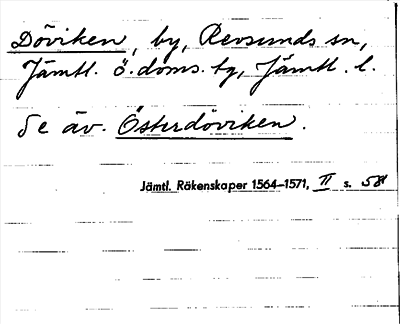 Döviken, by, Revsunds sn,
Jämtl. ö. doms. tg, Jämtl. l.
Se äv. Österdöviken.
Jämtl. Räkenskaper 1564–1571, II s. 58